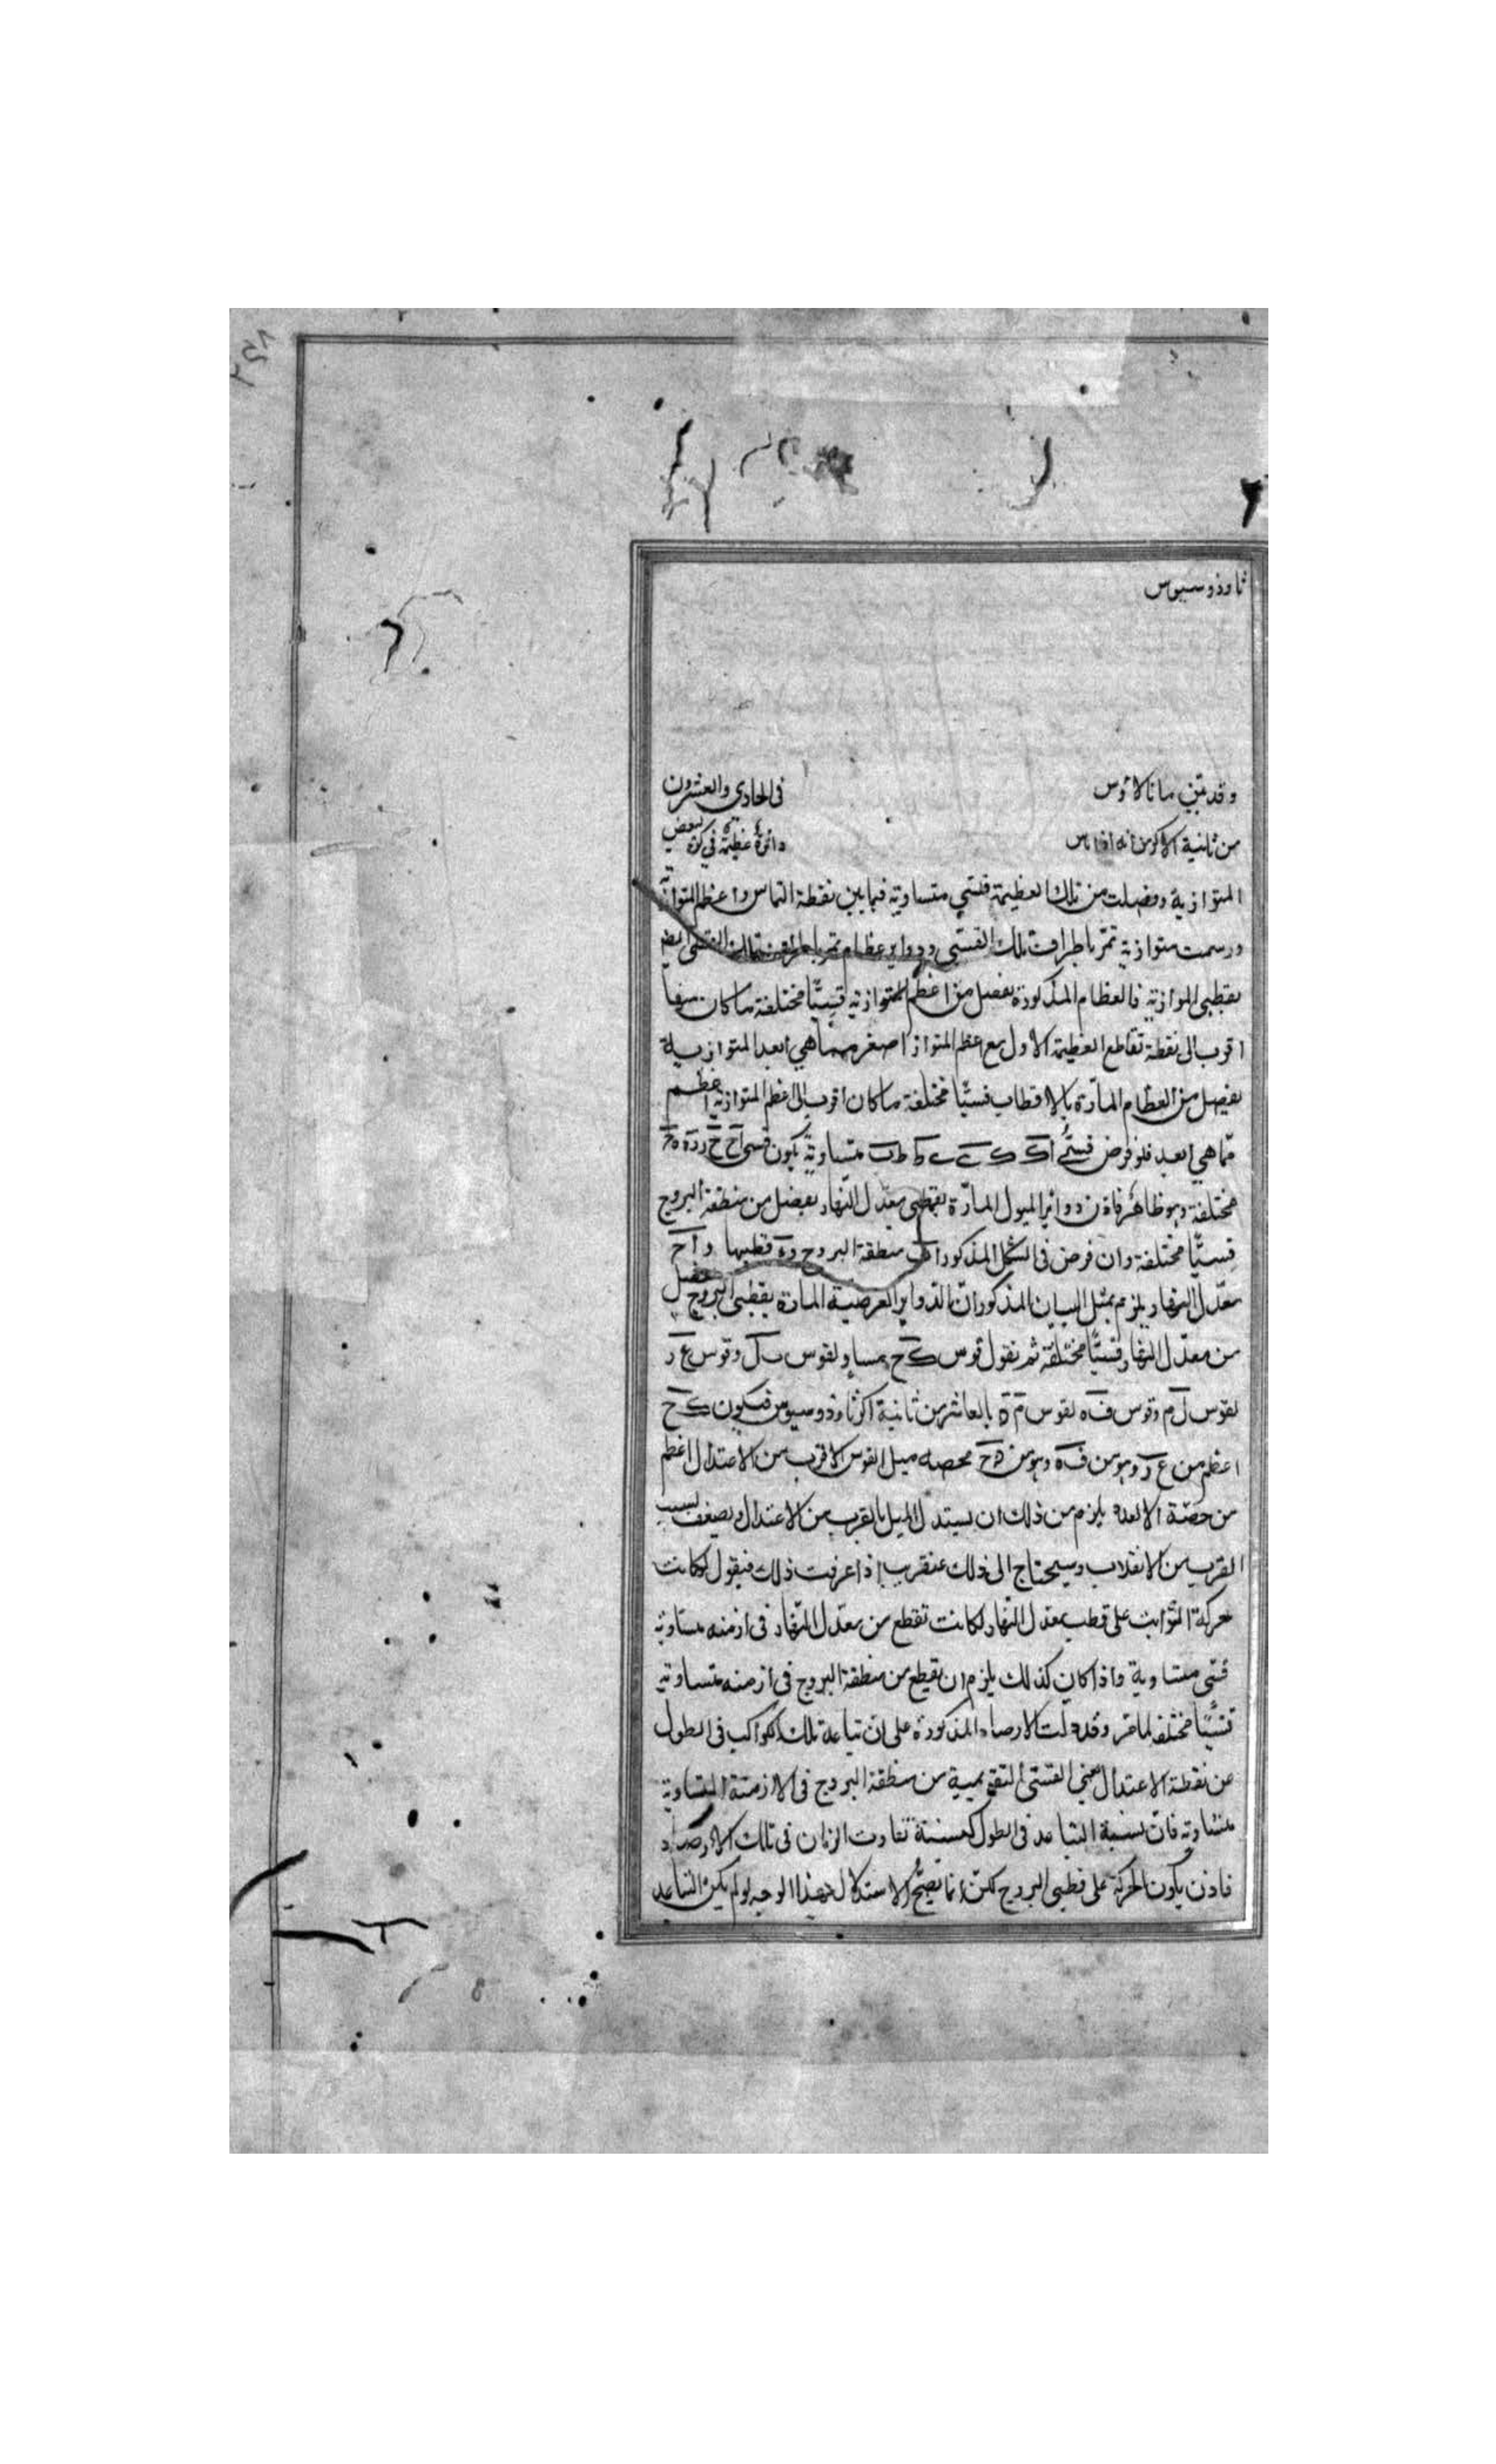 ثاوذوسيوس
وقد تبين مانالاوس في الحادي والعشرون
من ثانية الاكر من انه اذا ماس دائرة عظيمة في كرة بعض
المتوازية وفصلت من تلك العظيمة قسي متساوية فيما بين نقطة التماس واعظم المتوازية
ورسمت متوازية تمر باطراف تلك القسي ودواير عظام تمر باطراف تلك القسي ايضا
بقطبي الموازية فالعظام المذكورة يفصل من اعظم المتوازية قسيّا مختلفة ما كان منها
اقرب الى نقطة تقاطع العظيمة الاول مع اعظم المتواز اصغر مما هي ابعد المتوازية
يفصل من العظام المارّة بالاقطاب قسيّا مختلفة ما كان اقرب الى اعظم المتوازية اعظم
ممّا هي ابعد فلو فرض قسيّ متساوية يكون قسي
مختلفة وهو ظاهر فاذن دواير الميول المارّة بقطبي معدّل النهار يفصل من منطقة البروج
قسيّا مختلفة وان فرض في الشكل المذكور اب منطقة البروج وه قطبها و اح
معدّل النهار يلزم بمثل البيان المذكور انّ الدواير العرضية المارة بقطبي البروج يفصل
من معدّل النهار قسيّا مختلفة ثم نقول قوس ك ح مساو لقوس ب ل وقوس ع ر
لقوس ل م وقوس ف ه لقوس م ن بالعاشر من ثانية اكر ثاوذوسيوس فيكون ك ح
اعظم من ع ر وهو من ف ه وهو من محصه ميل القوس الاقرب من الاعتدال اعظم
من حصّة الابعد يلزم من ذلك ان يستدل الميل بالقرب من الاعتدال ويضعف بسبب
القرب من الانقلاب وسيحتاج الى ذلك عنقريب اذا عرفت ذلك فنقول لو كانت
حركة الثوابت على قطب معدل النهار لكانت تقطع من معدّل النهار في ازمنه متساوية
قسّي متساوية واذا كان كذلك يلزم ان يقطع من منطقة البروج في ازمنه متساوية
قسيّا مختلفه لما مر وقد دلّت الارصاد المذكورة على ان تباعد تلك الكواكب في الطول
عن نقطة الاعتدال يعني القسّي التقويمية من منطقة البروج في الازمنة المتساوية
متساويه فانّ نسبة التباعد في الطول كنسبة تفاوت الزمان في تلك الارصاد
فاذن يكون الحركة على قطبي البروج لكن انما يصحّ الاستدلال بهذا الوجه لو لم يكن التباعد